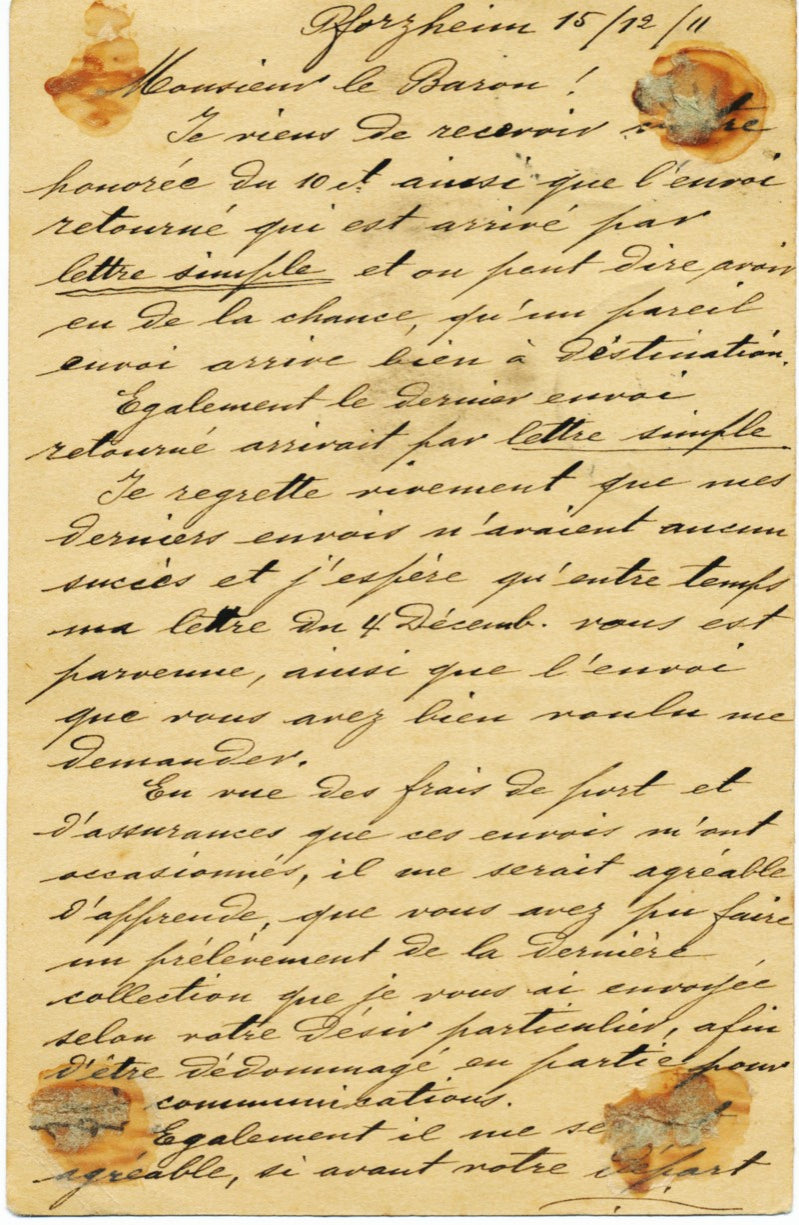 Pforzheim 15/12/11
Monsieur le Baron !
Je viens de recevoir votre
honorée du 10 ct ainsi que l'envoi
retourné qui est arrivé par
lettre simple et on peut dire avoir
eu de la chance, qu'un pareil
envoi arrive bien à déstination.
Egalement le dernier envoi
retourné arrivait par lettre simple
Je regrette vivement que mes
derniers envois n'avaient aucun
succès et j'espère qu'entre temps
ma lettre du 4 Décemb. vous est
parvenue, ainsi que l'envoi
que vous avez bien voulu me
demander.
En vue des frais de port et
d'assurances que ces envois m'ont
occasionnés, il me serait agréable
d'apprende, que vous avez pu faire
un prélévement de la dernière
collection que je vous ai envoyée
selon votre désir particulier, afin
d'être dédommagé en partie pour
communications.
Egalement il me
agréable, si avant votre départ